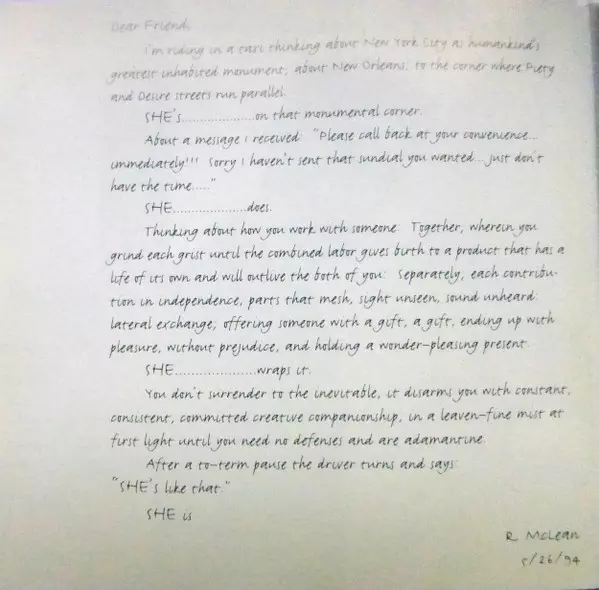 Dear Friend,
I'm riding in a taxi thinking about New York City as humankind's
greatest inhabited monument; about New Orleans, to the corner where Piety
and Desire streets run parallel.
SHE's....................on that monumental corner.
About a message I received: "Please call back at your convenience...
immediately!!! Sorry I haven't sent that sundial you wanted...just don't
have the time....."
SHE....................does.
Thinking about how you work with someone: Together, wherein you
grind each grist until the combined labor gives birth to a product that has a
life of its own and will outlive the both of you: Separately, each contribu-
tion in independence, parts that mesh, sight unseen, sound unheard:
lateral exchange; offering someone with a gift, a gift, ending up with
pleasure, without prejudice, and holding a wonder-pleasing present.
SHE......................wraps it.
You don't surrender to the inevitable, it disarms you with constant,
consistent, committed creative companionship, in a leaven-fine mist at
first light until you need no defenses and are adamantine.
After a to-term pause the driver turns and says:
"SHE's like that."
SHE is
R McLean
5/26/94